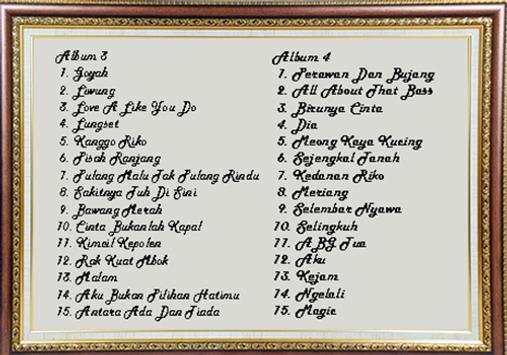 Album 3
1. Goyah
2. Luwung
3. Love A Like You Do
4. Lungset
5. Kanggo Riko
6. Pisah Ranjang
7. Pulang Malu Tak Pulang Rindu
8. Sakitnya Tuh Di Sini
9. Bawang Merah
10. Cinta Bukanlah Kapal
11. Kimcil Kepolen
12. Rak Kuat Mbok
13. Malam
14. Aku Bukan Pilihan Hatimu
15. Antara Ada Dan Tiada
Album 4
1. Perawan Dan Bujang
2. All About That Bass
3. Birunya Cinta
4. Dia
5. Meong Kaya Kucing
6. Sejengkal Tanah
7. Kedanan Riko
8. Meriang
9. Selembar Nyawa
10. Selingkuh
11. ABG Tua
12. Aku
13. Kejam
14. Ngelali
15. Magic